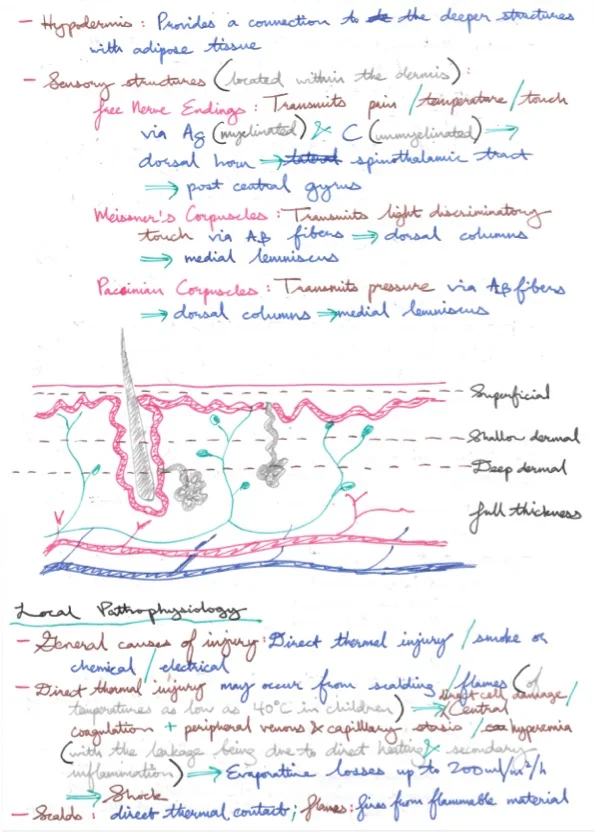 - Hypodermis : Provides a connection to the deeper structures
with adipose tissue
- Sensory structures (located within the dermis) :
free Nerve Endings : Transmits pain / temperature / touch
via Aδ (myelinated) & C (unmyelinated) ⇒
dorsal horn ⇒ lateral spinothalamic tract
⇒ post central gyrus
Meissner's Corpuscles : Transmits light discriminatory
touch via Aβ fibers ⇒ dorsal columns
⇒ medial lemniscus
Pacinian Corpuscles : Transmits pressure via Aβ fibers
⇒ dorsal columns ⇒ medial lemniscus
Superficial
Shallow dermal
Deep dermal
full thickness
Local Pathophysiology
- General causes of injury : Direct thermal injury / smoke or
chemical / electrical
- Direct thermal injury may occur from scalding / flames (of
temperatures as low as 40°C in children) ⇒ direct cell damage / Central
coagulation + peripheral venous & capillary stasis / hyperemia
(with the leakage being due to direct heating & secondary
inflammation) ⇒ Evaporative losses up to 200ml/m²/h
⇒ Shock
- Scalds : direct thermal contact ; flames : fires from flammable material